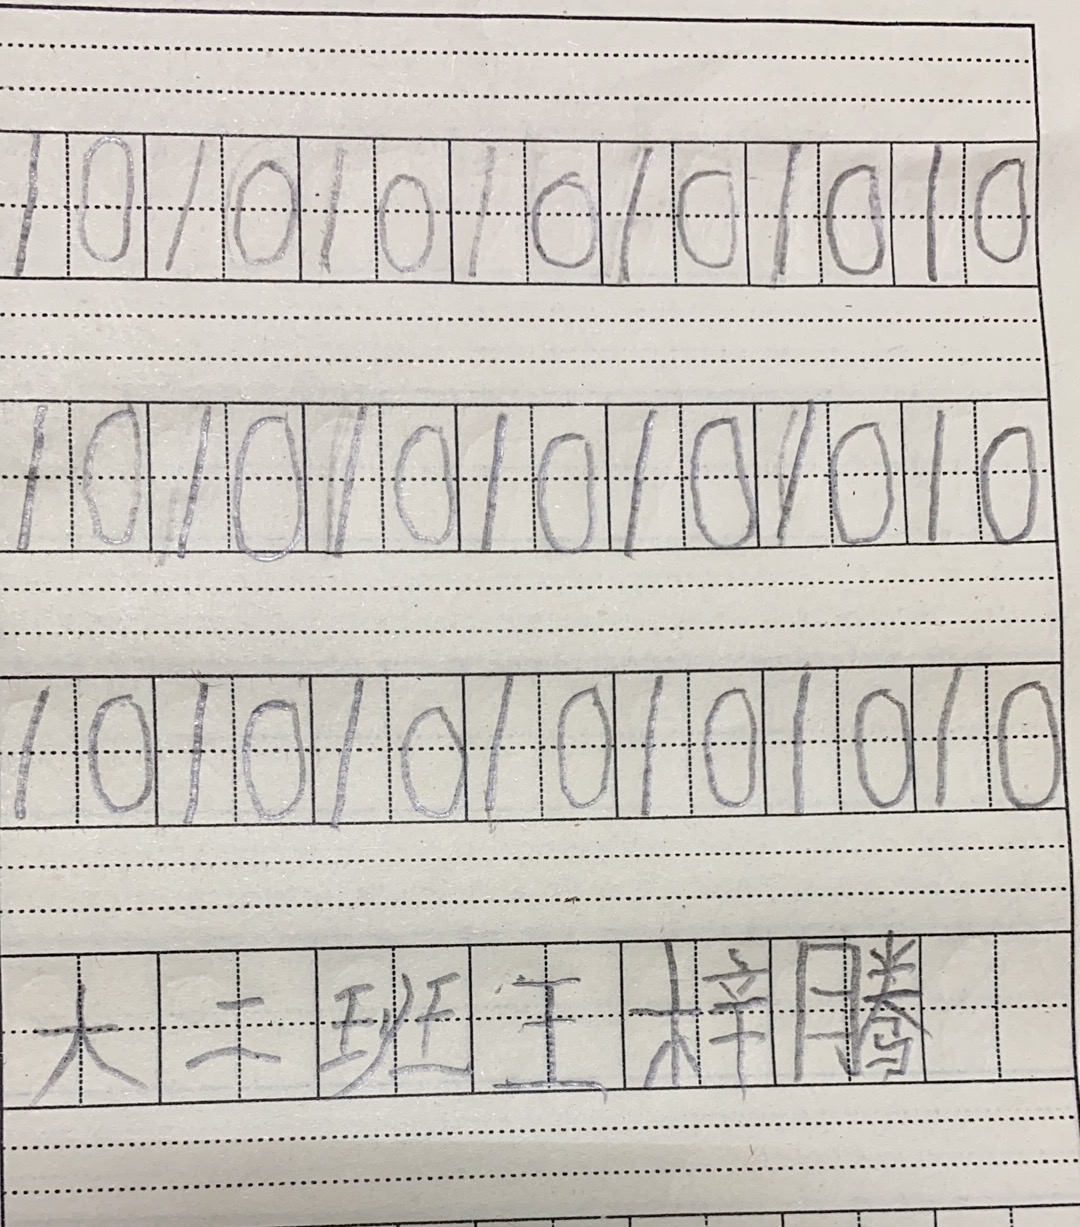 10 10 10 10 10 10 10
10 10 10 10 10 10 10
10 10 10 10 10 10 10
大二班王梓腾